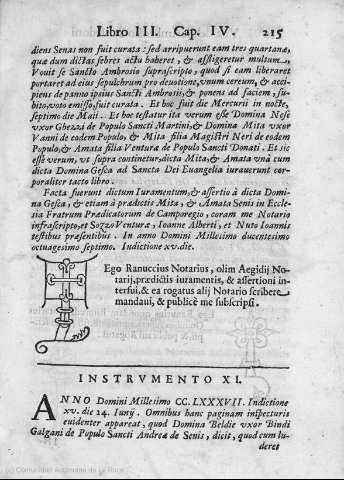 Libro III. Cap. IV. 215
diens Senas non fuit curata: sed arripuerunt eam tres quartanæ,
quæ dum dictas febres actu haberet, & affligeretur multum,
Vouit se Sancto Ambrosio suprascripto, quod si eam liberaret
portaret ad eius sepulchrum pro deuotione, unum cereum, & acci-
piens de panno ipsius Sancti Ambrosii, & ponens ad faciem, su-
bito, voto emisso, fuit curata. Et hoc fuit die Mercurii in nocte,
septimo die Maii. Et hoc testatur ita verum esse Domina Nese
vxor Ghezzi de Populo Sancti Martini, & Domina Mita vxor
Vanni de eodem Populo, & Mita filia Magistri Neri de eodem
Populo, & Amata filia Ventura de Populo Sancti Donati. Et sic
esse verum, vt supra continetur, dicta Mita, & Amata vnà cum
dicta Domina Gesca ad Sancta Dei Euangelia iurauerunt cor-
poraliter tacto libro.
Facta fuerunt dictum Iuramentum, & assertio à dicta Domi-
na Gesca, & etiam à prædictis Mita, & Amata Senis in Eccle-
sia Fratrum Prædicatorum de Camporegio, coram me Notario
infrascripto, et Sozzo Venturæ, Ioanne Alberti, et Nuto Ioannis
testibus præsentibus. In anno Domini Millesimo ducentesimo
octuagesimo septimo. Indictione xv. die.
Ego Ranuccius Notarius, olim Aegidij No-
tarij, prædictis iuramentis, & assertioni in-
terfui, & ea rogatus alij Notario scribere
mandaui, & publicè me subscripsi.
INSTRVMENTO XI.
ANNO Domini Millesimo CC. LXXXVII. Indictione
xv. die 24. Iunij. Omnibus hanc paginam inspecturis
euidenter appareat, quod Domina Beldie vxor Bindi
Galgani de Populo Sancti Andreæ de Senis, dicit, quod cum lu-
deret
© Comunidad Autónoma de La Rioja